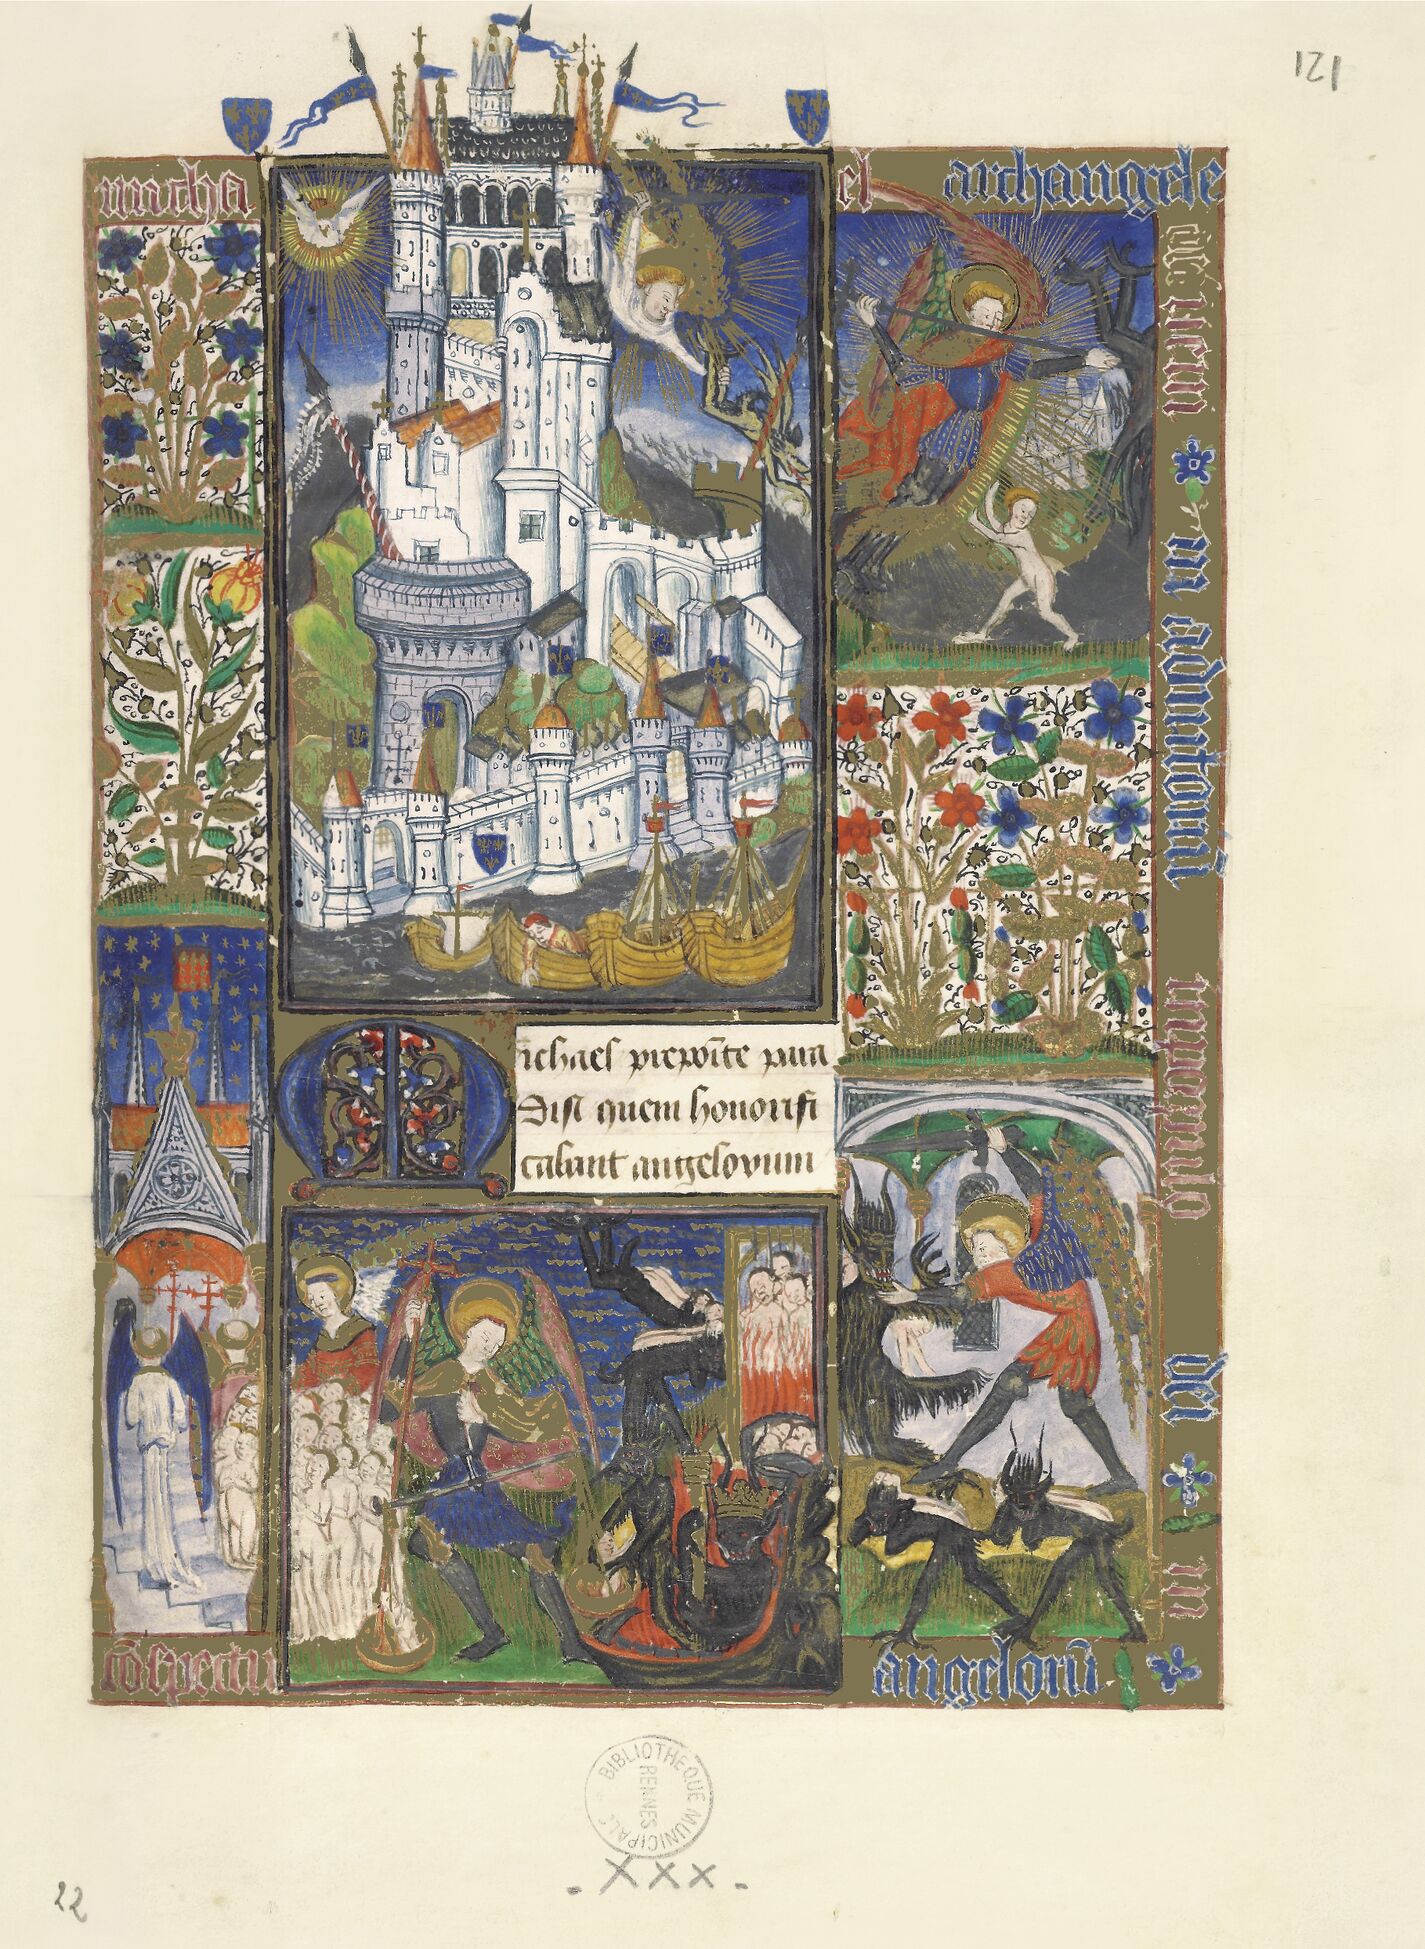 121
micha el archangele
veni
in adiutoriū
in populo
dei
in
cōspectu
angelorū
Michael preposite para
Disi quem honorifi
cabant angelorum
BIBLIOTHEQUE MUNICIPALE
RENNES
- XXX -
22